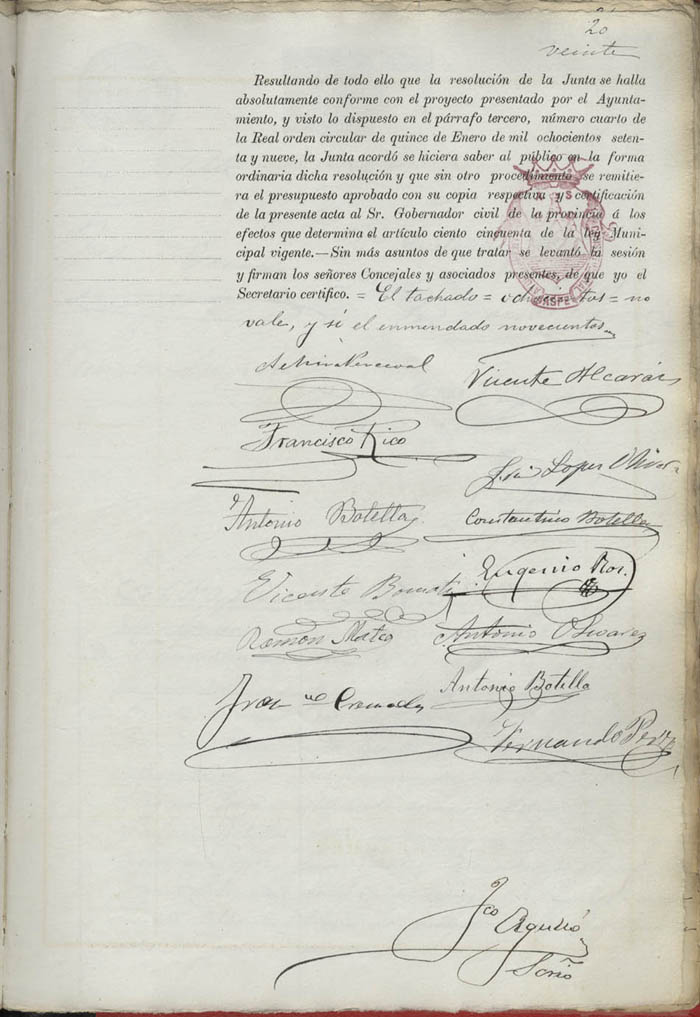 20
veinte
Resultando de todo ello que la resolución de la Junta se halla
absolutamente conforme con el proyecto presentado por el Ayunta-
miento, y visto lo dispuesto en el párrafo tercero, número cuarto de
la Real orden circular de quince de Enero de mil ochocientos seten-
ta y nueve, la Junta acordó se hiciera saber al público en la forma
ordinaria dicha resolución y que sin otro procedimiento se remitie-
ra el presupuesto aprobado con su copia respectiva y certificación
de la presente acta al Sr. Gobernador civil de la provincia á los
efectos que determina el artículo ciento cincuenta de la ley Muni-
cipal vigente.—Sin más asuntos de que tratar se levantó la sesión
y firman los señores Concejales y asociados presentes, de que yo el
Secretario certifico. = El tachado = ochocientos = no
vale, y sí el enmendado novecientos.
Vicente Alcaráz
Francisco Rico
Lopez
Antonio Botella
Constantino Botella
Vicente
Eugenio
Ramon Mateo
Antonio Olivares
Antonio Botella
Fernando Perez
Fco Agulló
Srio
ASPE